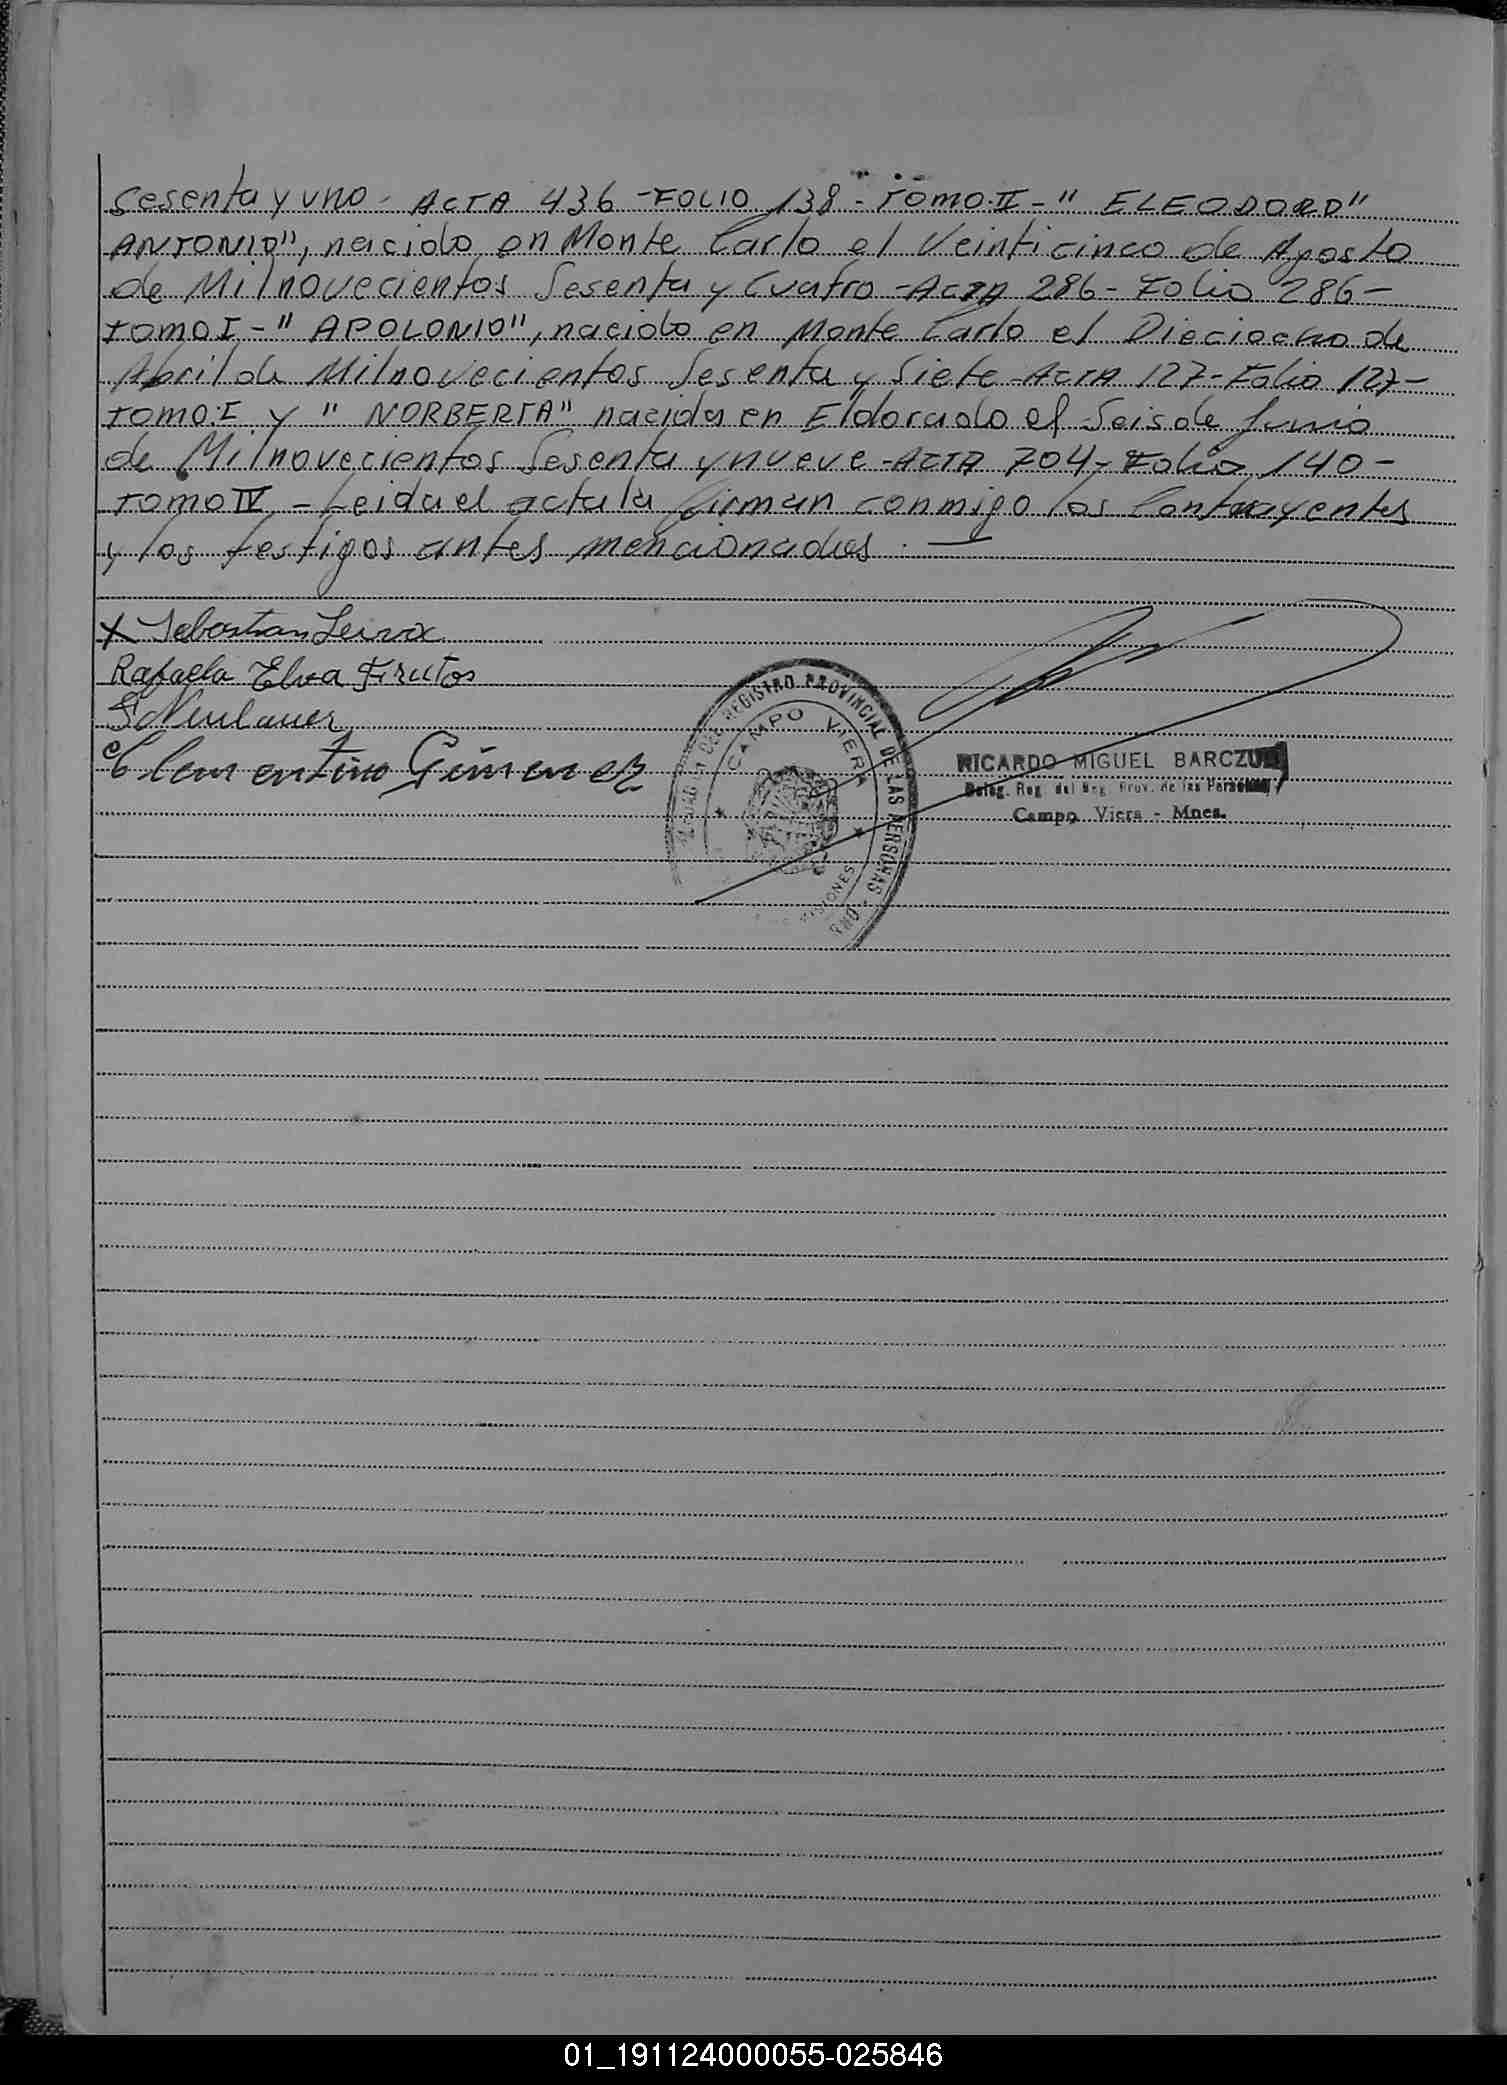 sesenta y uno - ACTA 436 - FOLIO 138 - TOMO II - " ELEODORO"
ANTONIO", nacido en Monte Carlo el Veinticinco de Agosto
de Milnovecientos Sesenta y Cuatro - ACTA 286 - Folio 286 -
TOMO I - " APOLONIO", nacido en Monte Carlo el Dieciocho de
Abril de Milnovecientos Sesenta y Siete - ACTA 127 - Folio 127 -
TOMO: I y " NORBERTA" nacida en Eldorado el Seis de Junio
de Milnovecientos Sesenta y nueve - ACTA 704 - Folio 140 -
TOMO IV - Leida el acta la firman conmigo los Contrayentes
y los testigos antes mencionados. —
X Sebastian Leiva
Rafaela Elva Frutos
Neulauer
Clementino Gimenez
REGISTRO PROVINCIAL DE LAS PERSONAS
CAMPO VIERA
MISIONES
RICARDO MIGUEL BARCZUK
Deleg. Reg. del Reg. Prov. de las Personas
Campo Viera - Mnes.
01_191124000055-025846